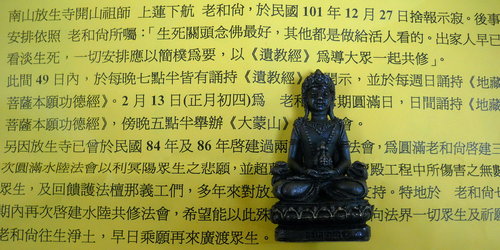 南山放生寺開山祖師 上蓮下航 老和尚，於民國 101 年 12 月 27 日捨報示寂。後事
安排依照 老和尚所囑：「生死關頭念佛最好，其他都是做給活人看的。出家人早已
看淡生死，一切安排應以簡樸為要，以《遺教經》為導大眾一起共修」。
此間 49 日內，於每晚七點半皆有誦持《遺教經》 開示，並於每週日誦持《地藏
菩薩本願功德經》。2 月 13 日(正月初四)為 老和 期圓滿日，日間誦持《地藏
菩薩本願功德經》，傍晚五點半舉辦《大蒙山》 會。
另因放生寺已曾於民國 84 年及 86 年啓建過兩 法會，為圓滿老和尚啓建三
次圓滿水陸法會以利冥陽眾生之悲願，並超 殿工程中所傷害之無數
眾生，及回饋護法檀那義工們，多年來對放 持。特地於 老和尚
期內再次啓建水陸共修法會，希望能以此殊 向法界一切眾生及祈禱
老和尚往生淨土，早日乘願再來廣渡眾生。